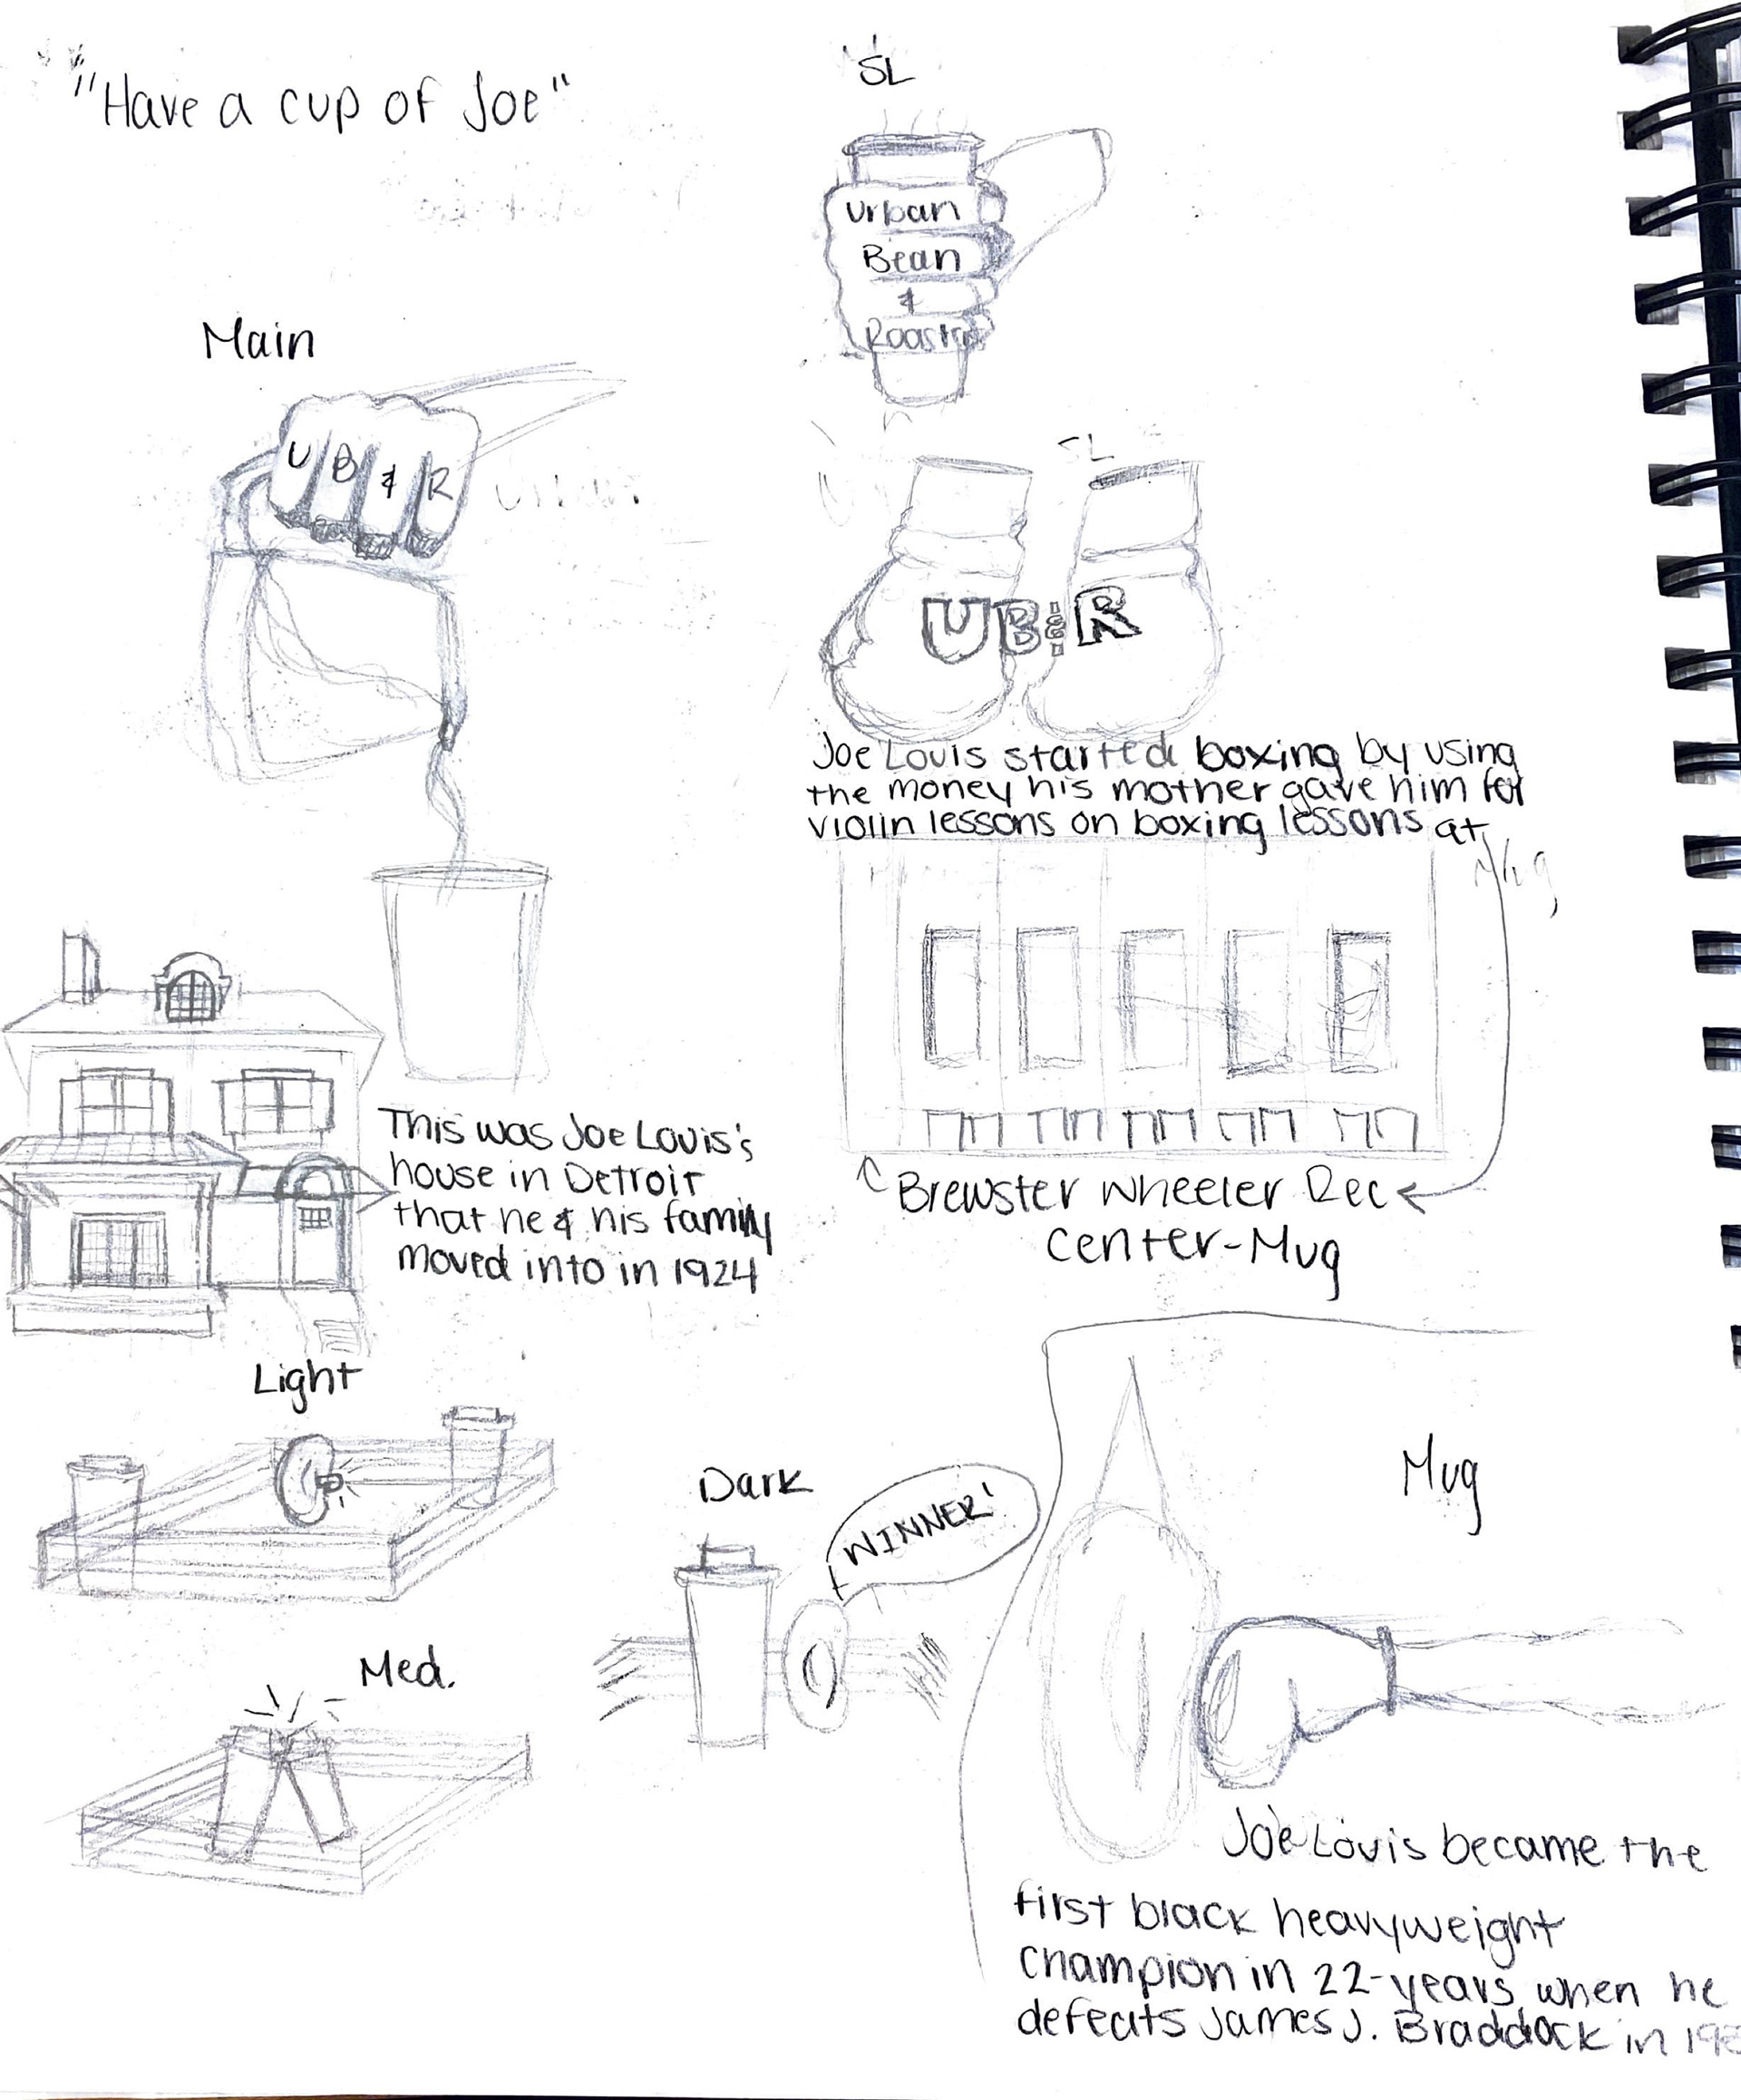 "Have a cup of Joe"
SL
Urban
Bean
&
Main
U B & R
SL
UB&R
Joe Louis started boxing by using
the money his mother gave him for
violin lessons on boxing lessons at
Mug
Brewster Wheeler Rec
Center-Mug
This was Joe Louis's
house in Detroit
that he & his family
moved into in 1924
Light
Dark
WINNER!
Med.
Mug
Joe Louis became the
first black heavyweight
champion in 22-years when he
defeats James J. Braddock in